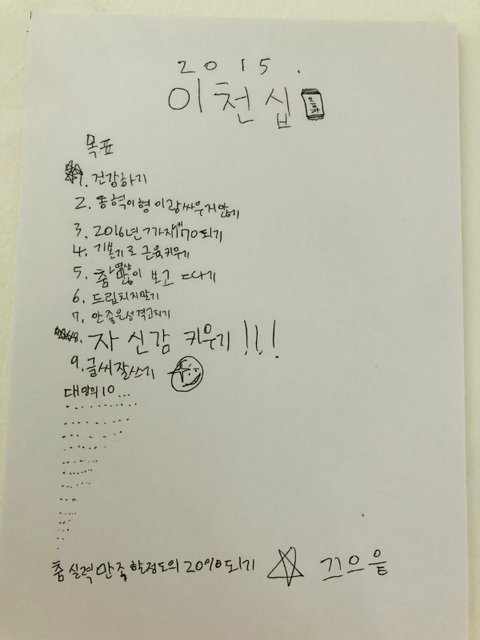 2015.
이천십
목표
1. 건강하기
2. 동혁이형이랑싸우지않기
3. 2016년까지 170되기
4. 기본기로 근육키우기
5. 춤영상많이 보고 따기
6. 드립치지말기
7. 안좋은성격고치기
8. 자신감 키우기!!!
9. 글씨잘쓰기
대망의10...
춤실력만족할정도의 20%되기 끄으읕